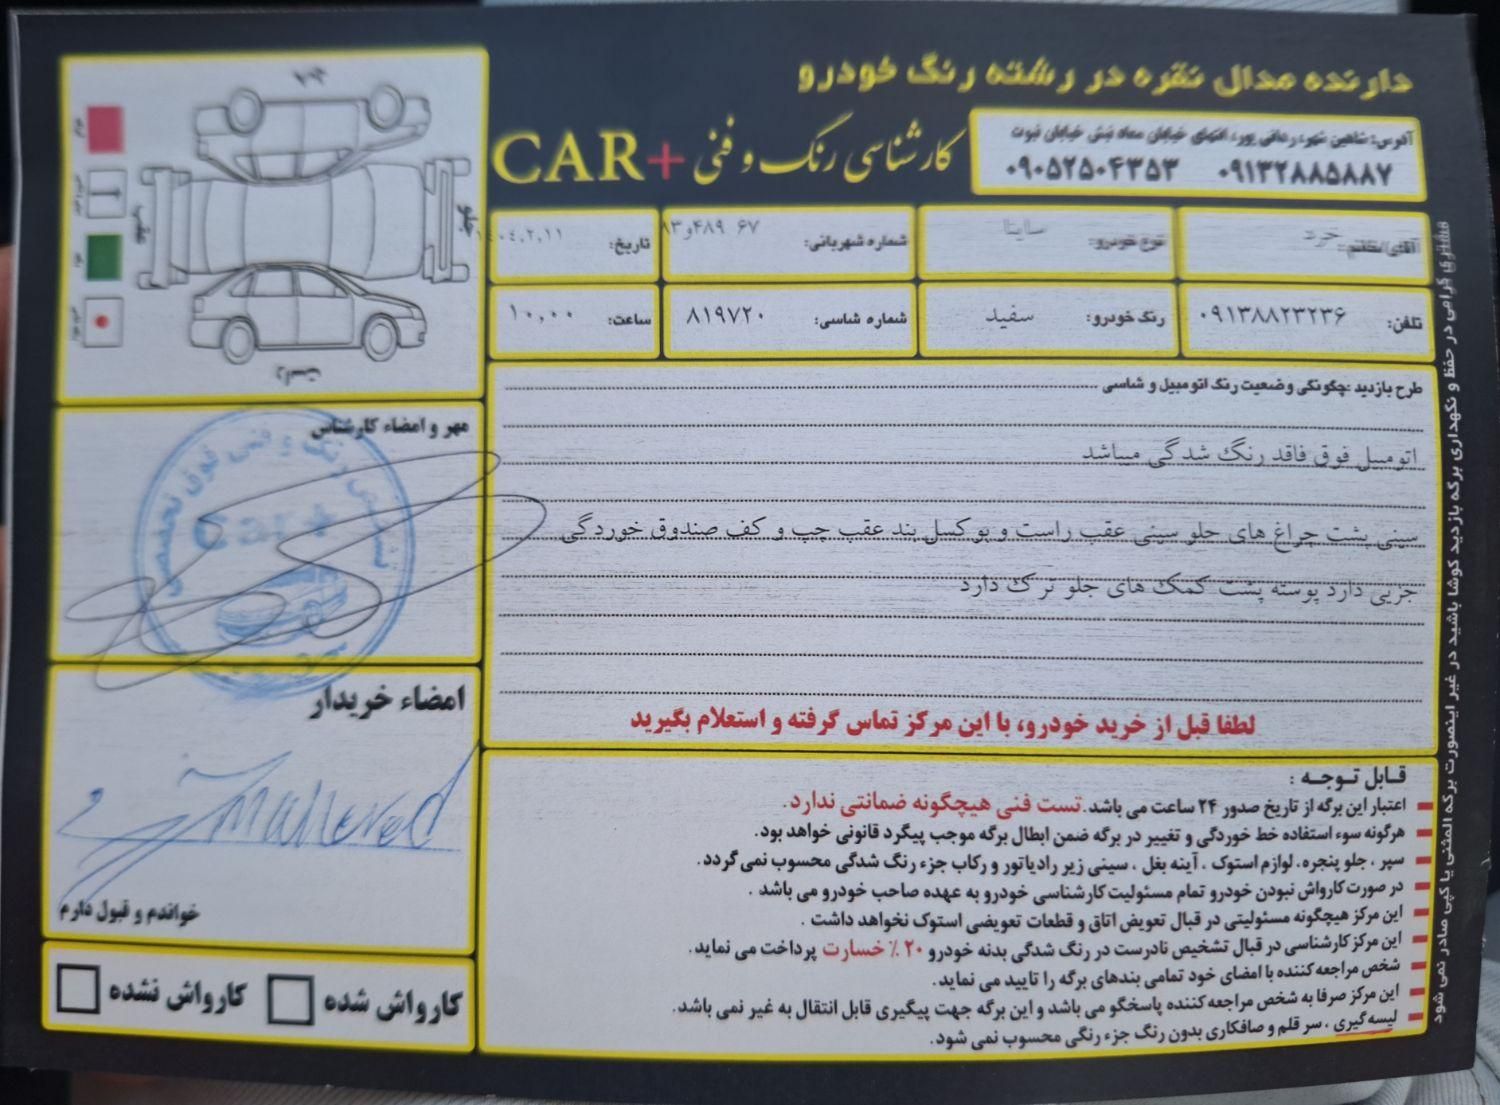 دارنده مدال نقره در رشته رنگ خودرو
کارشناسی رنگ و فنی +CAR
آدرس: شاهین شهر، ردانی پور، انتهای خیابان معاد نبش خیابان نبوت
۰۹۱۳۲۸۸۵۸۸۷ ۰۹۰۵۲۵۰۴۳۵۳
آقای/خانم: خرد
نوع خودرو: ساینا
شماره شهربانی: ۶۷ ۴۸۹و۸۳
تاریخ: ۱۴۰۴,۲,۱۱
تلفن: ۰۹۱۳۸۸۲۳۲۳۶
رنگ خودرو: سفید
شماره شاسی: ۸۱۹۷۲۰
ساعت: ۱۰,۰۰
طرح بازدید :چگونگی وضعیت رنگ اتومبیل و شاسی
اتومبیل فوق فاقد رنگ شدگی میباشد
سینی پشت چراغ های جلو سینی عقب راست و بوکسل بند عقب چپ و کف صندوق خوردگی
جزیی دارد پوسته پشت کمک های جلو ترک دارد
لطفا قبل از خرید خودرو، با این مرکز تماس گرفته و استعلام بگیرید
قابل توجه :
اعتبار این برگه از تاریخ صدور ۲۴ ساعت می باشد. تست فنی هیچگونه ضمانتی ندارد.
هرگونه سوء استفاده خط خوردگی و تغییر در برگه ضمن ابطال برگه موجب پیگرد قانونی خواهد بود.
سپر ، جلو پنجره، لوازم استوک ، آینه بغل ، سینی زیر رادیاتور و رکاب جزء رنگ شدگی محسوب نمی گردد.
در صورت کارواش نبودن خودرو تمام مسئولیت کارشناسی خودرو به عهده صاحب خودرو می باشد .
این مرکز هیچگونه مسئولیتی در قبال تعویض اتاق و قطعات تعویضی استوک نخواهد داشت .
این مرکز کارشناسی در قبال تشخیص نادرست در رنگ شدگی بدنه خودرو ۲۰ ٪ خسارت پرداخت می نماید.
شخص مراجعه کننده با امضای خود تمامی بندهای برگه را تایید می نماید.
این مرکز صرفا به شخص مراجعه کننده پاسخگو می باشد و این برگه جهت پیگیری قابل انتقال به غیر نمی باشد.
لیسه گیری ، سر قلم و صافکاری بدون رنگ جزء رنگی محسوب نمی شود.
جلو
عقب
چپ
راست
مهر و امضاء کارشناس
Car+
امضاء خریدار
خواندم و قبول دارم
کارواش شده
کارواش نشده
مشتری گرامی در حفظ و نگهداری برگه بازدید کوشا باشید در غیر اینصورت برگه المثنی یا کپی صادر نمی شود